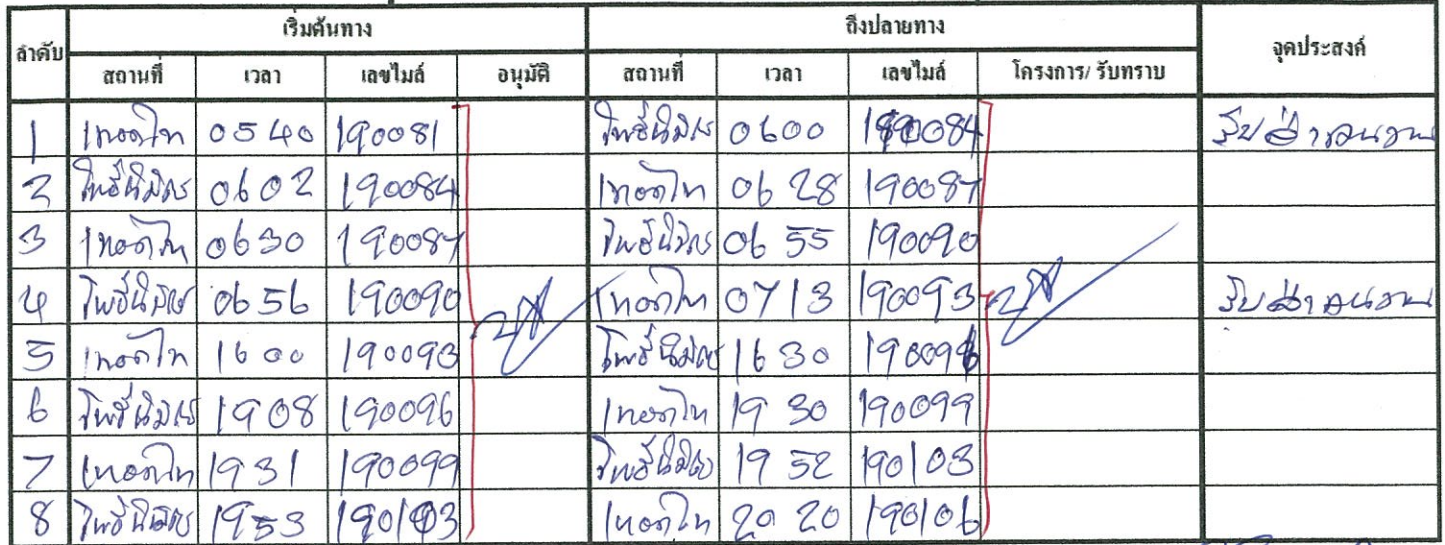 ลำดับ เริ่มต้นทาง ถึงปลายทาง จุดประสงค์
สถานที่ เวลา เลขไมล์ อนุมัติ สถานที่ เวลา เลขไมล์ โครงการ/ รับทราบ
1 เทอดไท 0540 190081 โพธิ์นิมิตร 0600 190084 รับส่ง
2 โพธิ์นิมิตร 0602 190084 เทอดไท 0628 190087
3 เทอดไท 0630 190087 โพธิ์นิมิตร 0655 190090
4 โพธิ์นิมิตร 0656 190090 เทอดไท 0713 190093 รับส่ง
5 เทอดไท 1600 190093 โพธิ์นิมิตร 1630 190096
6 โพธิ์นิมิตร 1908 190096 เทอดไท 1930 190099
7 เทอดไท 1931 190099 โพธิ์นิมิตร 1952 190103
8 โพธิ์นิมิตร 1953 190103 เทอดไท 2020 190106